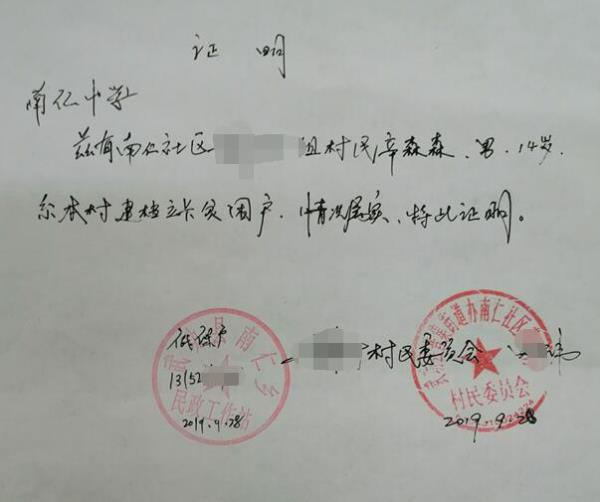 证明
南仁中学
兹有南仁社区 组村民辛森森、男、14岁、
系本村建档立卡贫困户、情况属实、特此证明。
低保户
13152
2019.9.28
县南仁乡
民政工作站
村民委员会
街道办南仁社区
村民委员会
2019.9.28